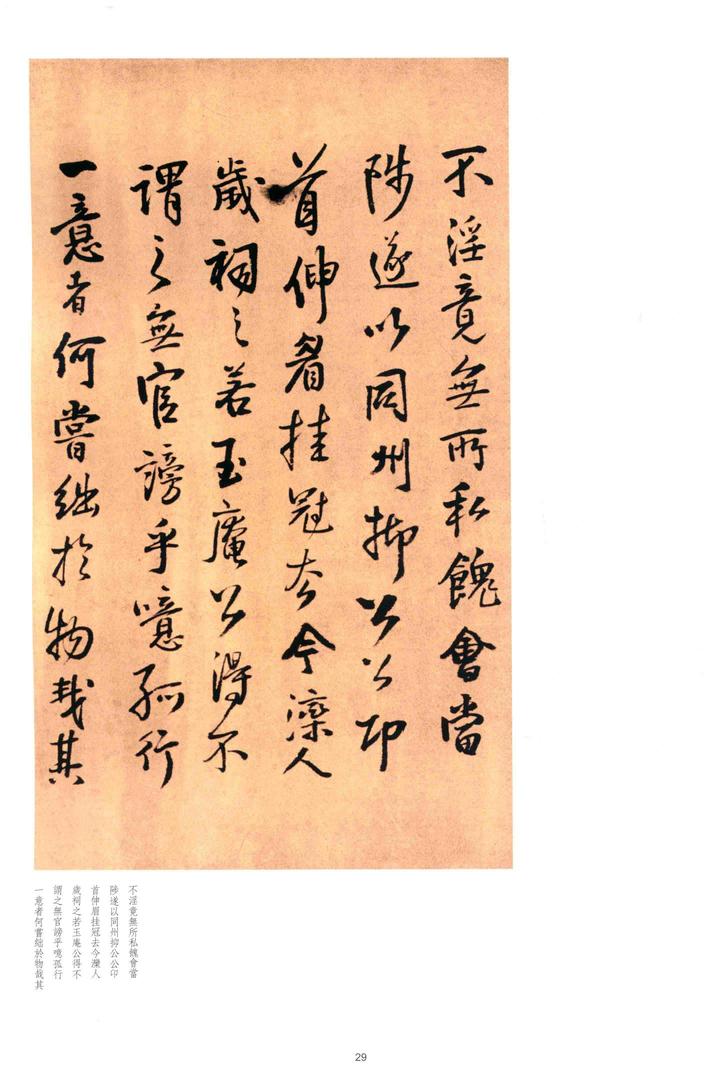 不淫竟無所私餽會當
陟遂以同州抑公公卬
首伸眉挂冠去今灤人
歲祠之若玉庵公得不
謂之無官謗乎噫孤行
一意者何嘗絀於物哉其
不淫竟無所私餽會當
陟遂以同州抑公公卬
首伸眉挂冠去今灤人
歲祠之若玉庵公得不
謂之無官謗乎噫孤行
一意者何嘗絀於物哉其
29